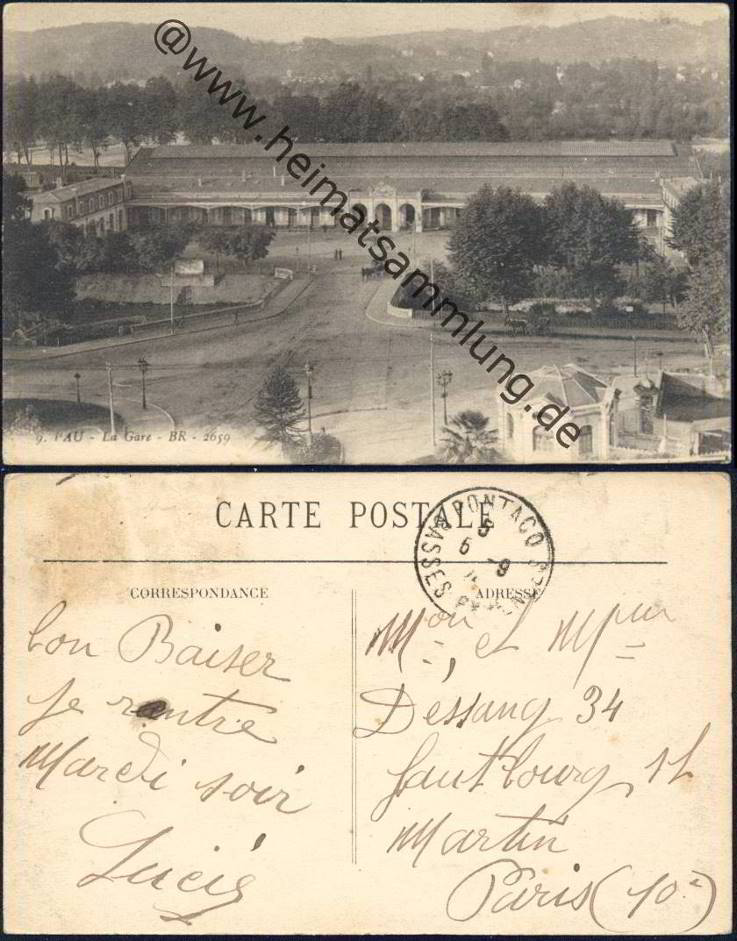 @www.heimatsammlung.de
9. PAU - La Gare - BR - 2659
CARTE POSTALE
PONTACQ
6 -9
BASSES PYRENEES
CORRESPONDANCE
ADRESSE
bon Baiser
Je rentre
Mardi soir
Lucie
Mon et Mme
Dessang 34
faut bourg st
Martin
Paris (10e)